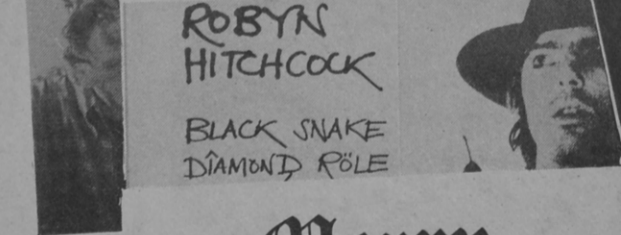 ROBYN
HITCHCOCK
BLACK SNAKE
DÎAMOND RÖLE